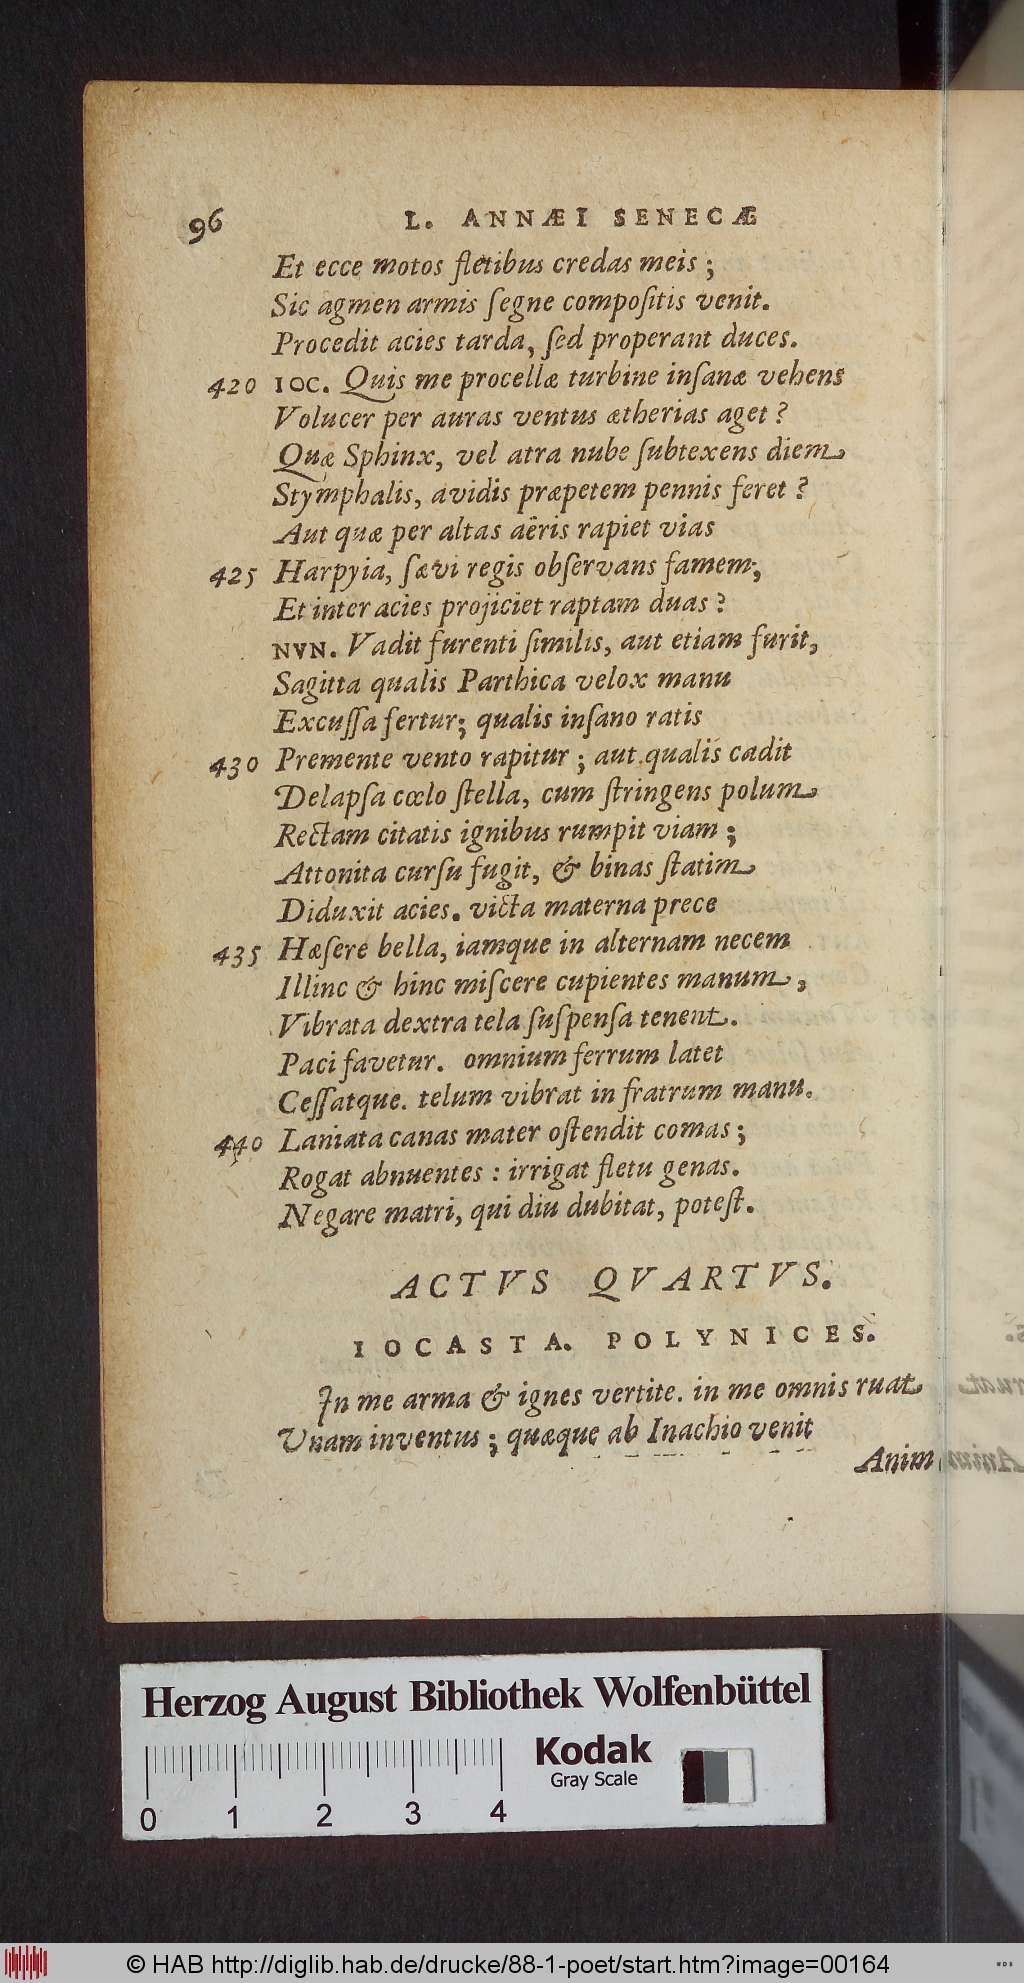 96 L. ANNÆI SENECÆ
Et ecce motos fletibus credas meis ;
Sic agmen armis ſegne compoſitis venit.
Procedit acies tarda, ſed properant duces.
420 IOC. Quis me procellæ turbine inſanæ vehens
Volucer per auras ventus ætherias aget ?
Quæ Sphinx, vel atra nube ſubtexens diem
Stymphalis, avidis præpetem pennis feret ?
Aut quæ per altas aëris rapiet vias
425 Harpyia, ſævi regis obſervans famem,
Et inter acies projiciet raptam duas ?
NVN. Vadit furenti ſimilis, aut etiam furit,
Sagitta qualis Parthica velox manu
Excuſſa fertur; qualis inſano ratis
430 Premente vento rapitur ; aut qualis cadit
Delapſa cœlo ſtella, cum ſtringens polum
Rectam citatis ignibus rumpit viam ;
Attonita curſu fugit, & binas ſtatim
Diduxit acies. victa materna prece
435 Hæſere bella, iamque in alternam necem
Illinc & hinc miſcere cupientes manum,
Vibrata dextra tela ſuſpenſa tenent.
Paci favetur. omnium ferrum latet
Ceſſatque. telum vibrat in fratrum manu.
440 Laniata canas mater oſtendit comas ;
Rogat abnuentes : irrigat fletu genas.
Negare matri, qui diu dubitat, poteſt.
ACTVS QVARTVS.
IOCASTA. POLYNICES.
In me arma & ignes vertite. in me omnis ruat
Unam inventus ; quæque ab Inachio venit
Anim
Herzog August Bibliothek Wolfenbüttel
Kodak
Gray Scale
0 1 2 3 4
© HAB http://diglib.hab.de/drucke/88-1-poet/start.htm?image=00164